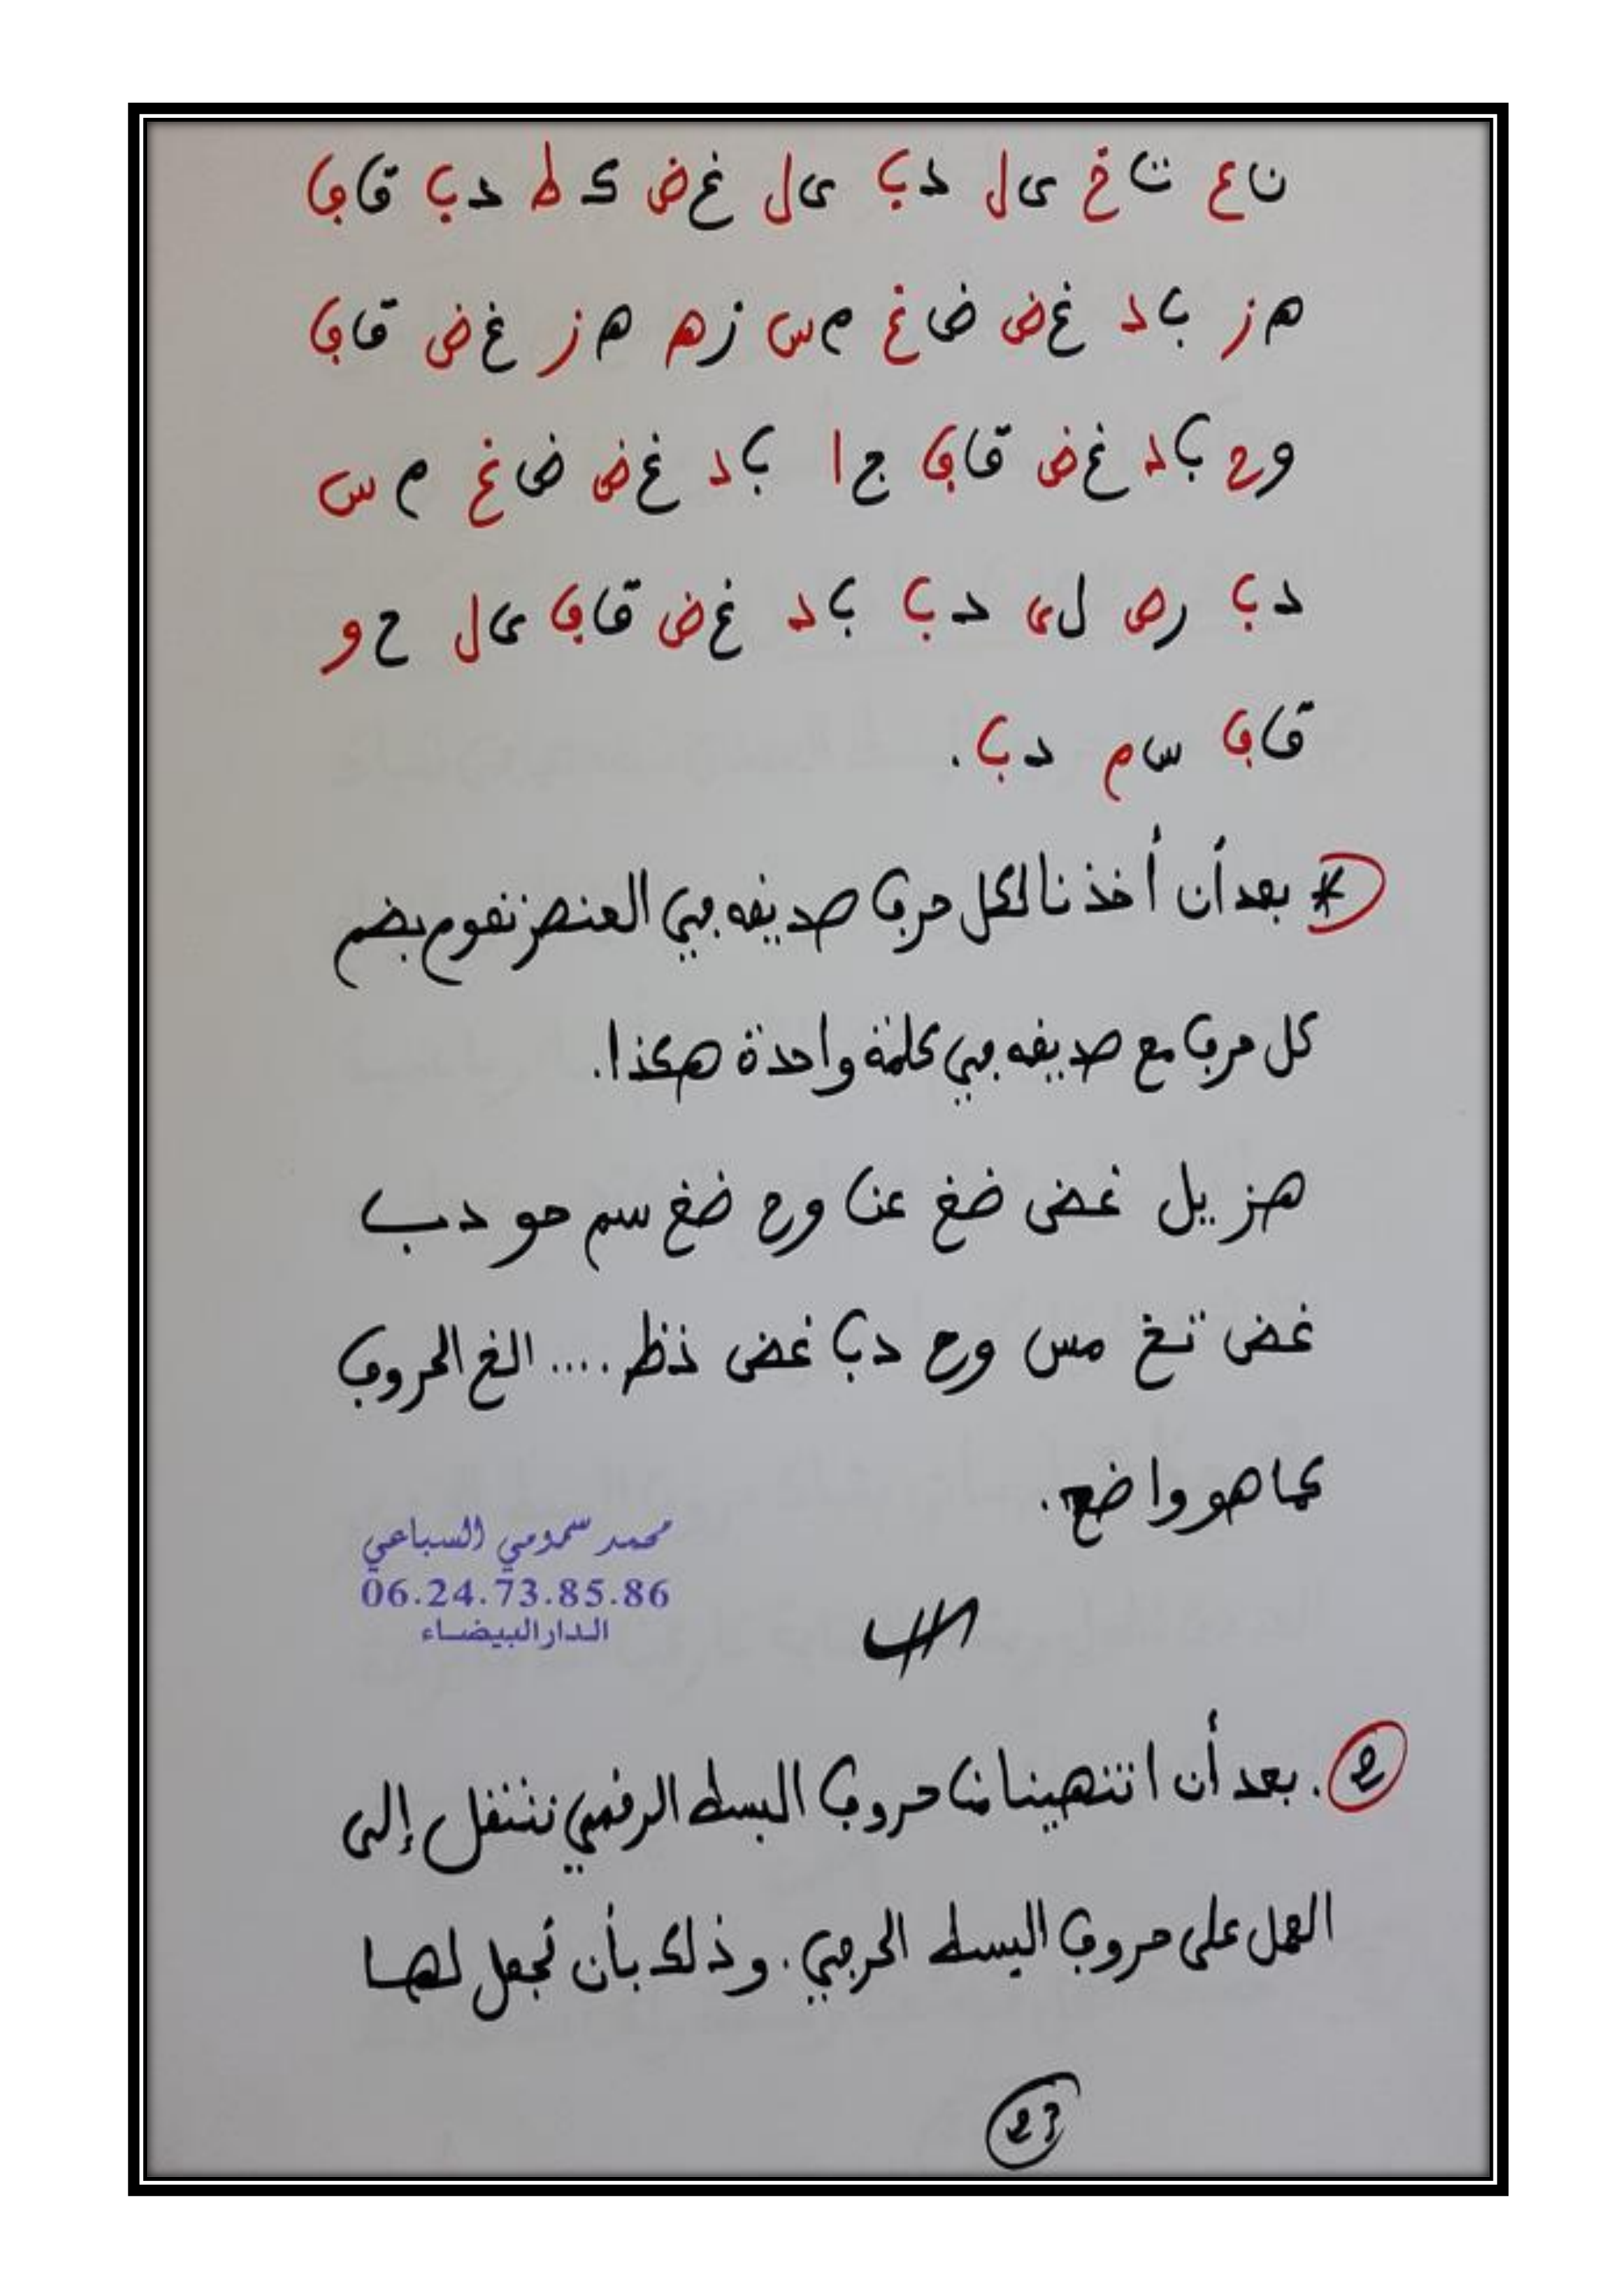 ن ع ت خ ى ل د ب ى ل غ ض ك ط د ب ق ف
ه ز ب د غ ض ض غ م س ز ه ه ز غ ض ق ف
و ح ب د غ ض ق ف ج ا ب د غ ض ض غ م س
د ب ر ص ل ى د ب ب د غ ض ق ف ى ل ح و
ق ف س م د ب .
* بعد أن أخذنا لكل حرف صديقه في العنصر نقوم بضم
كل حرف مع صديقه في كلمة واحدة هكذا.
هز يل غض ضغ عن وح ضغ سم حو دب
غض تخ مس وح دب غض ذظ .... الخ الحروف
كما هو واضح.
محمد سمومي السباعي
06.24.73.85.86
الدار البيضاء
2. بعد أن انتهينا من حروف البسط الرقمي ننتقل إلى
العمل على حروف البسط الحرفي. وذلك بأن نجعل لها
23